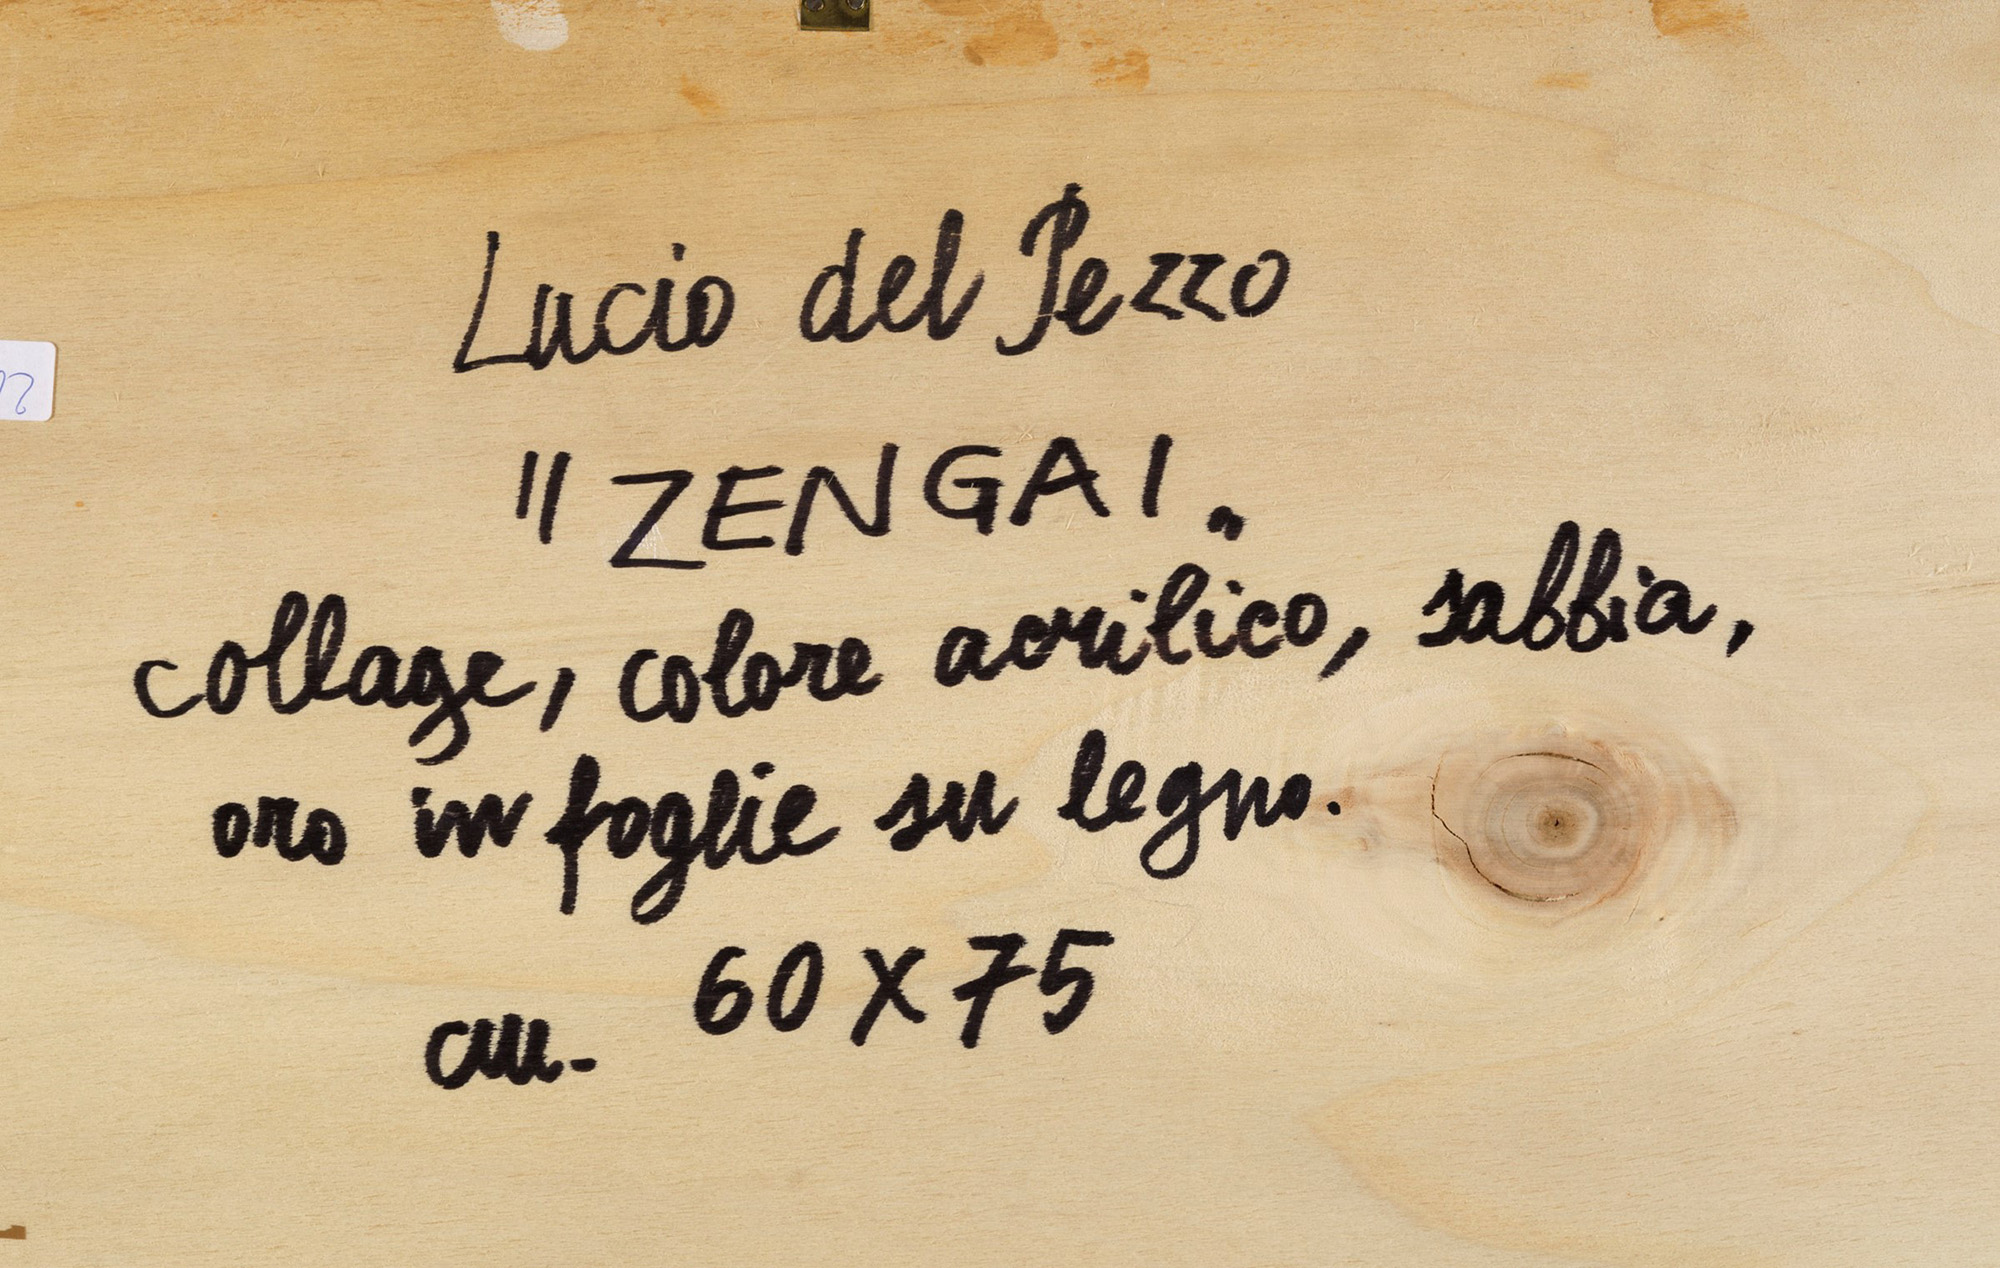 Lucio del Pezzo
"ZENGAI„
collage, colore acrilico, sabbia,
oro in foglie su legno.
cm. 60 X 75